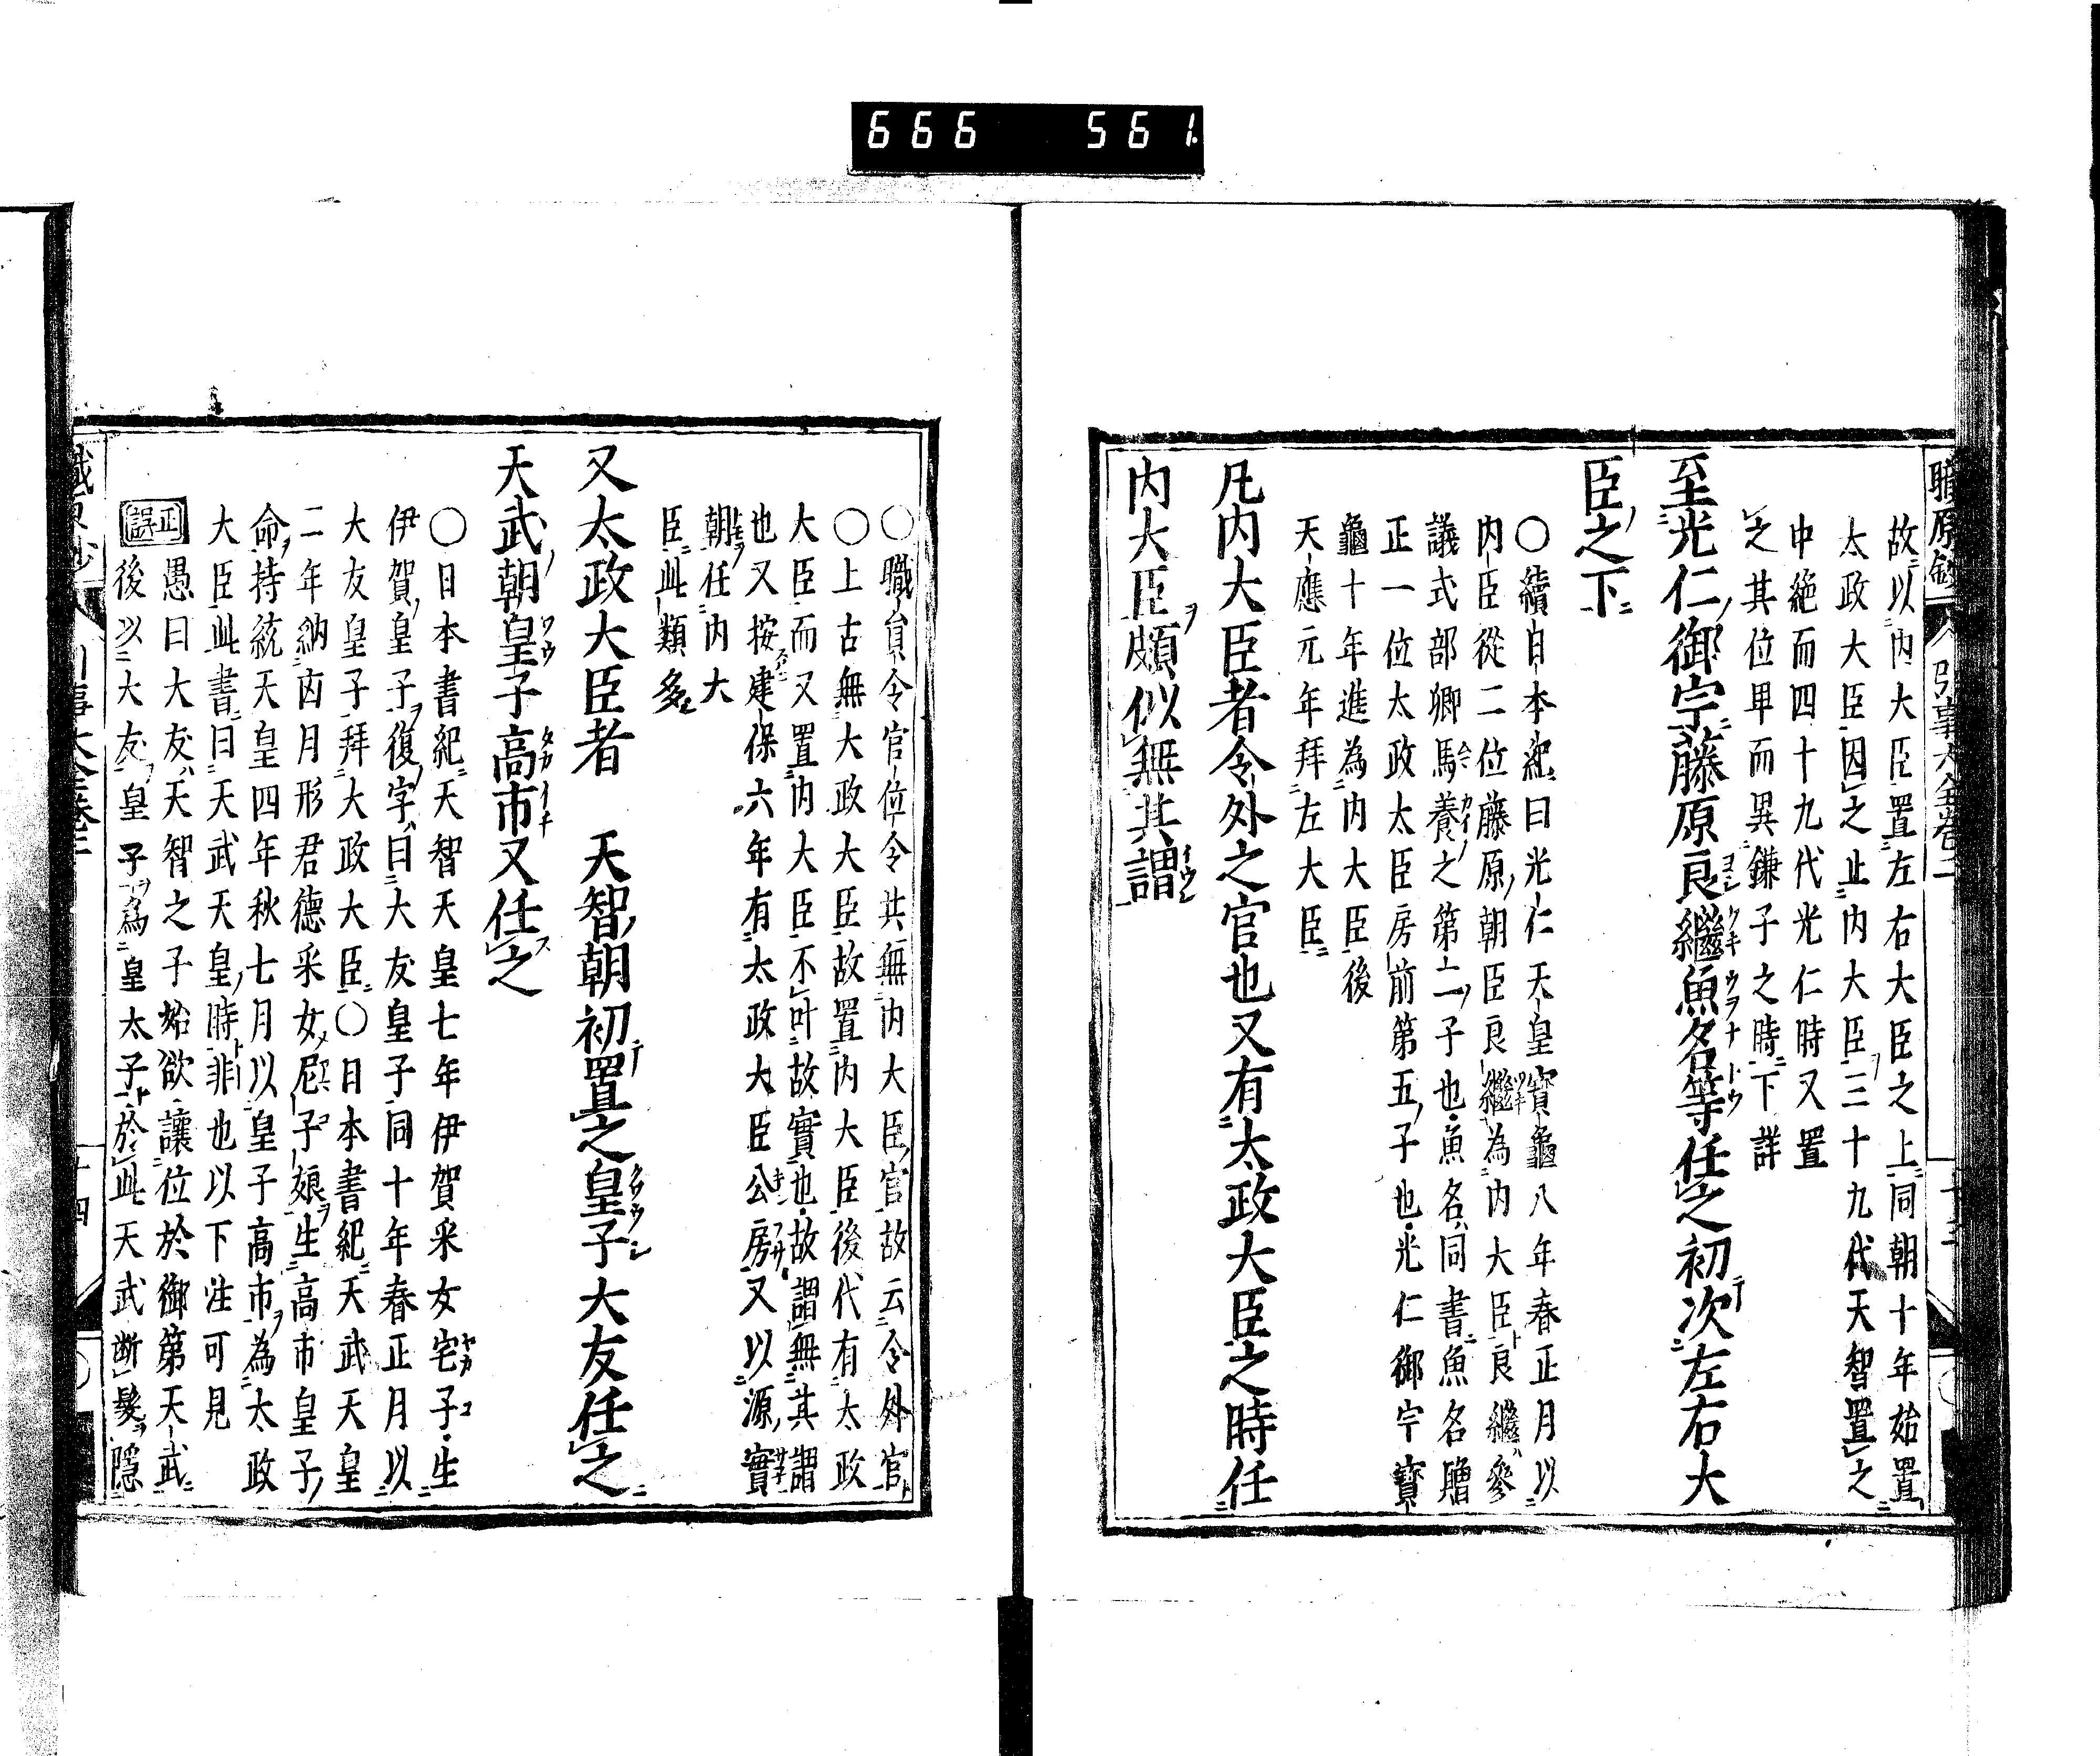 666 561
職原鈔 引事大全卷二
故以内大臣置左右大臣之上同朝十年始置
太政大臣因之止内大臣三十九代天智置之
中絶而四十九代光仁時又置
之其位卑而異鎌子之時下詳
至光仁御宇藤原良繼魚名等任之初次左右大
臣之下
〇續日本紀曰光仁天皇寳龜八年春正月以
内臣從二位藤原朝臣良繼為内大臣良繼參
議式部卿馬養之第二子也魚名同書魚名贈
正一位太政太臣房前第五子也光仁御宇寳
龜十年進為内大臣後
天應元年拜左大臣
凡内大臣者令外之官也又有太政大臣之時任
内大臣頗似無其謂
〇職員令官位令共無内大臣官故云令外官
〇上古無大政大臣故置内大臣後代有太政
大臣而又置内大臣不叶故實也故謂無其謂
也又按建保六年有太政大臣公房又以源實
朝任内大
臣此類多
又太政大臣者 天智朝初置之皇子大友任之
天武朝皇子高市又任之
〇日本書紀天智天皇七年伊賀采女宅子生
伊賀皇子復字曰大友皇子同十年春正月以
大友皇子拜大政大臣〇日本書紀天武天皇
二年納㐫月形君德采女尼子娘生高市皇子
命持統天皇四年秋七月以皇子高市為太政
大臣此書曰天武天皇時非也以下注可見
正誤 愚曰大友天智之子始欲讓位於御第天武
後以大友皇子為皇太子於此天武断髮隱
十四